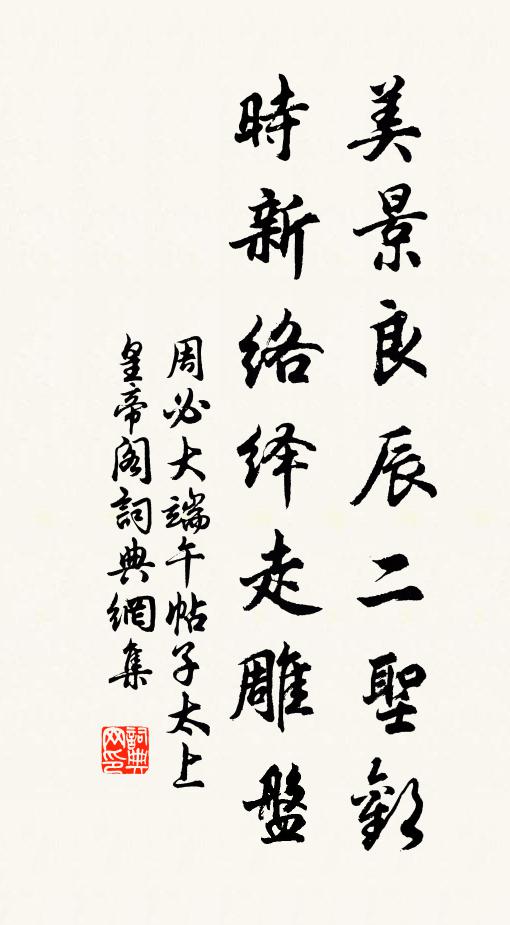 美景良辰二聖歡
時新络绎走雕盤
周必大端午帖子太上
皇帝阁詞典網集
詞典
网印